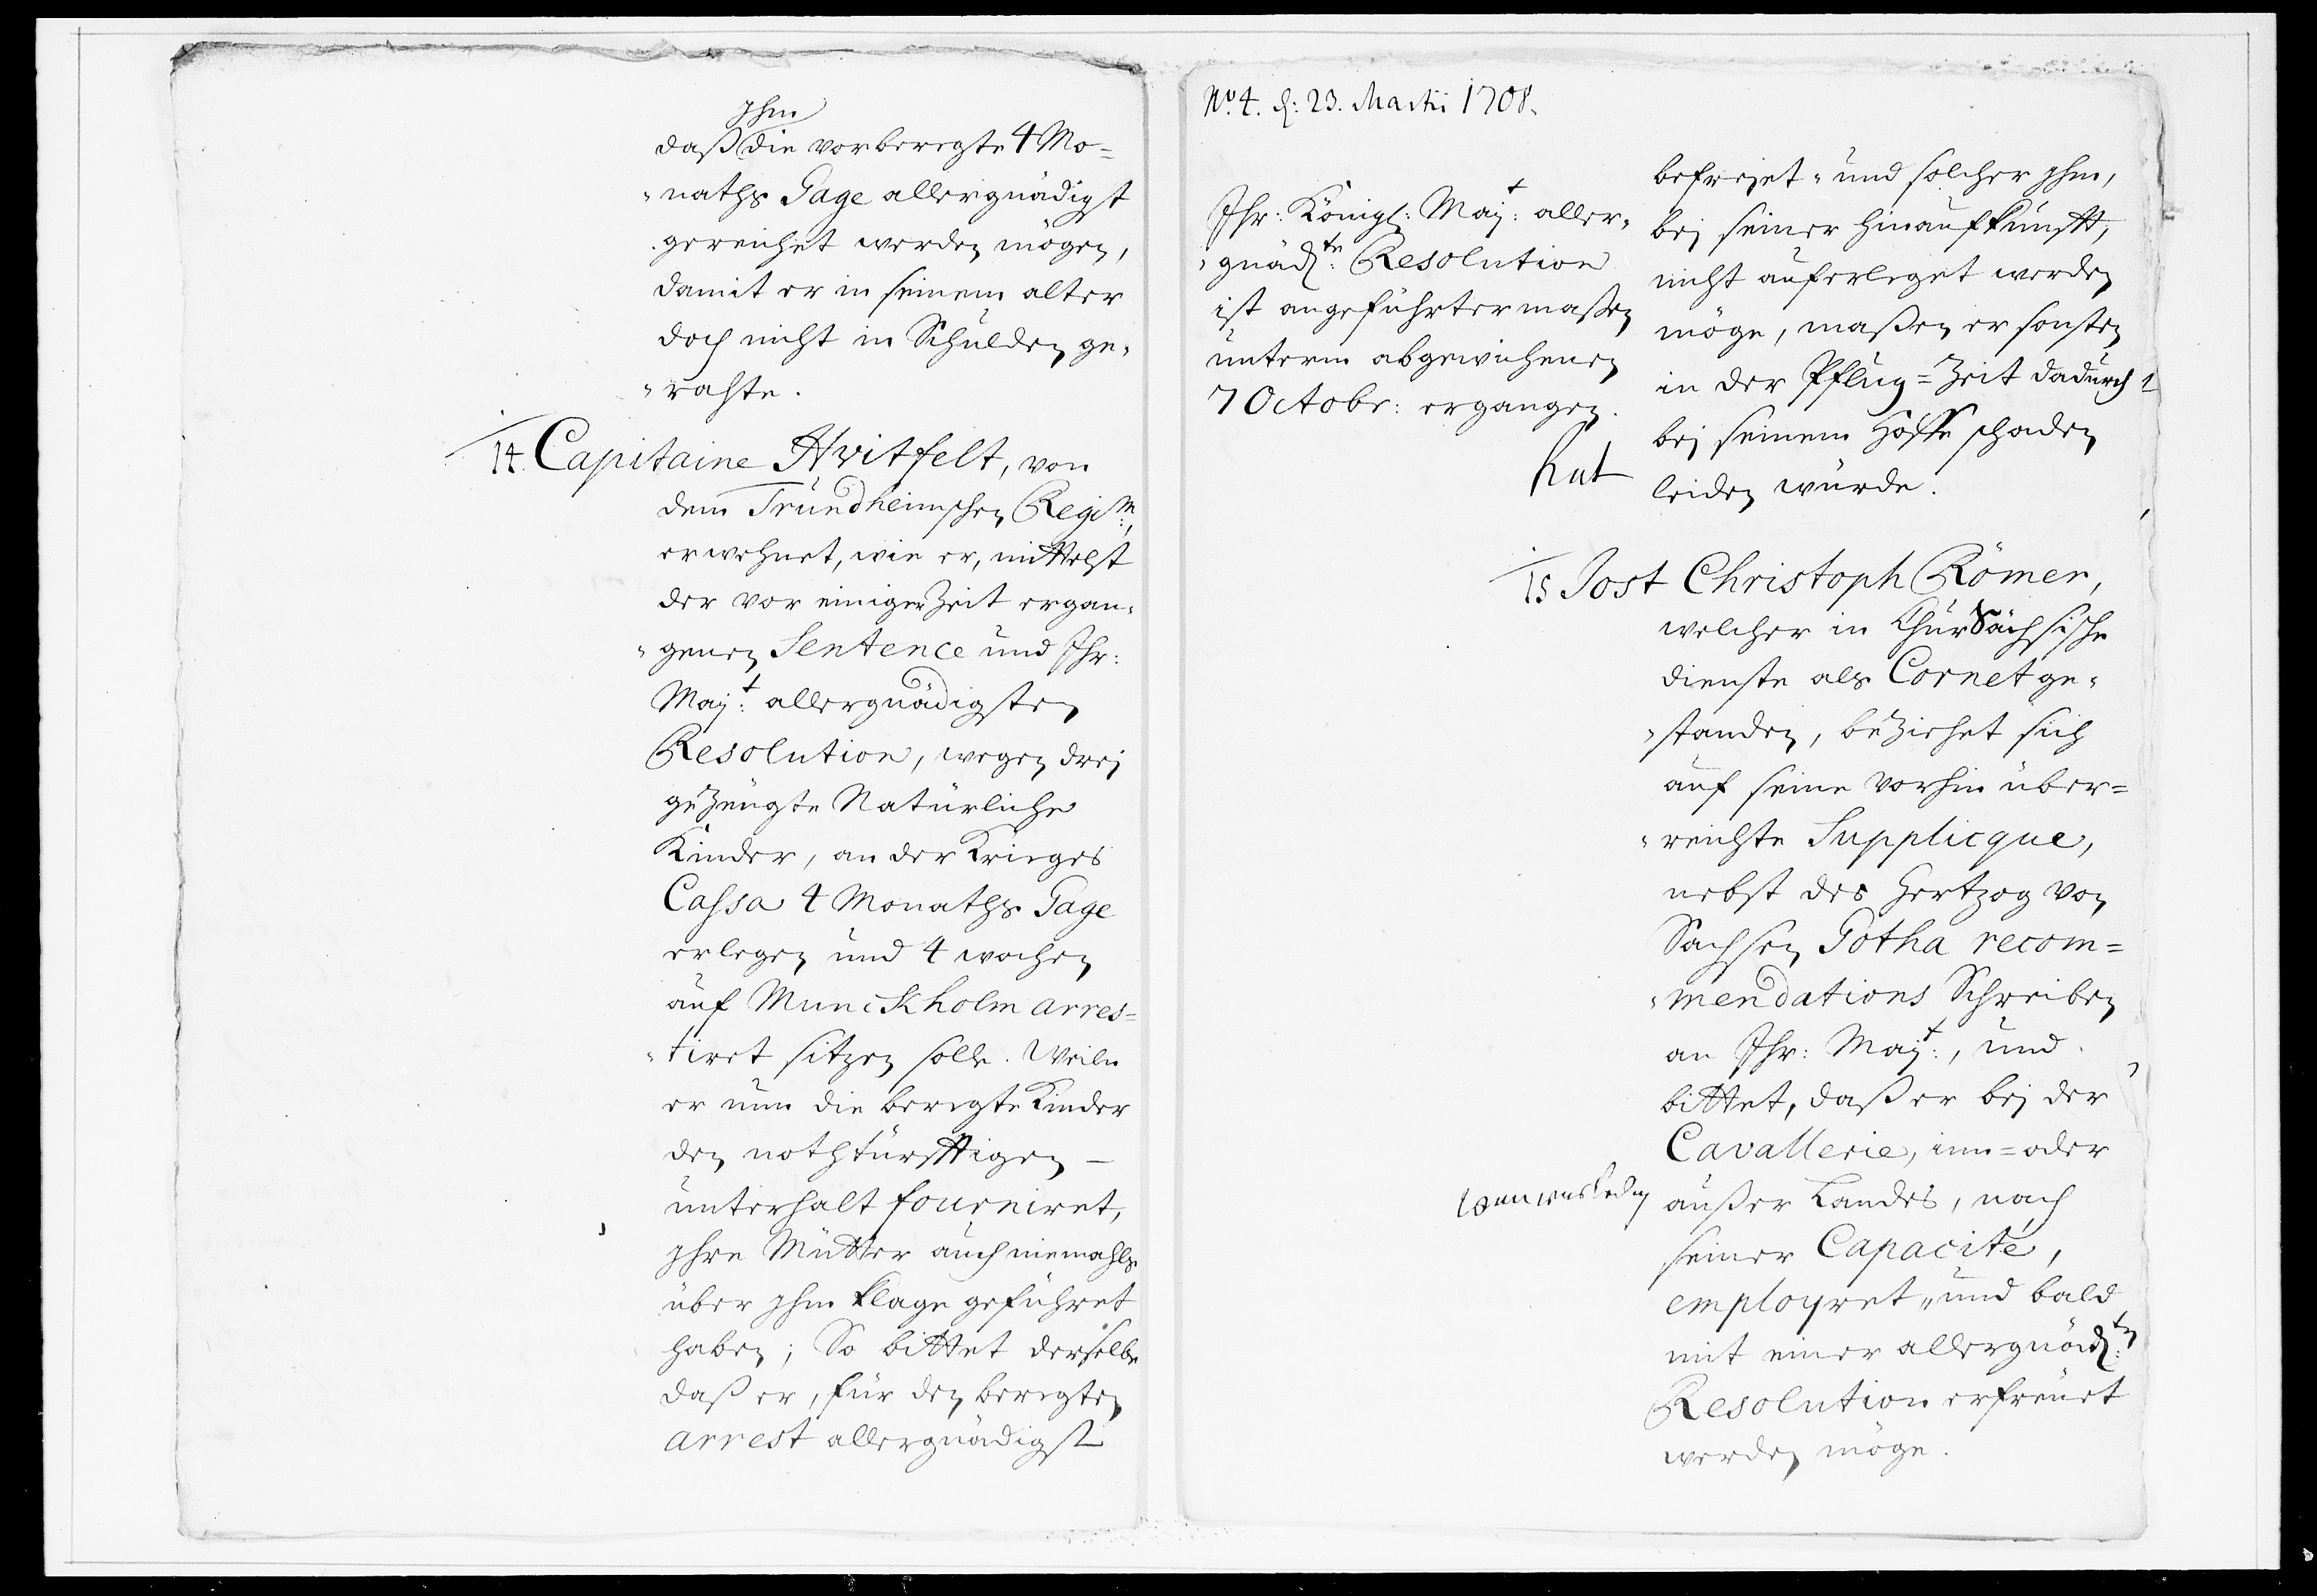 Ihm
daß die vorberegte 4 Mo-
"naths Gage allergnädigst
gereichet werden mögen,
damit er in seinem alter
doch nicht in Schulden ge-
"rahte.
14. Capitaine Hvitfelt, von
dem Trundheimschen Regim:,
erwehnet, wie er, mittelst
der vor einiger Zeit ergan-
"genen Sentence und Ihr:
Maj:t allergnädigsten
Resolution, wegen drej
gezeugte Natürliche
Kinder, an der Krieges
Cassa 4 Monaths Gage
erlegen und 4 wochen
auf Munckholm arres=
"tiret sitzen solle. Weiln
er nun die beregte Kinder
den nothtürfftigen —
unterhalt fourniret,
Ihre Mütter auch niemahls
über Ihm klage geführet
haben; So bittet derselbe
daß er, für den beregten
arrest allergnädigst
No. 4. d: 23. Martii 1708.
Ihr: Königl: Maj:t aller-
"gnäd:te Resolution
ist angeführtermaßen
unterm abgewichenen
7 Octobr: ergangen.
hat
befrejet- und solcher Ihm,
bej seiner hinaufkunfft,
nicht auferleget werden
möge, maßen er sonsten
in der Pflug=Zeit dadurch
bej seinem Hoffe schaden
leiden würde.
15 Jost Christoph Römer,
welcher in ChurSächsische
dienste als Cornet ge-
"standen, beziehet sich
auf seine vorhin über=
"reichte Supplicque,
nebst des Hertzog von
Sachsen Gotha recom=
"mendations Schreiben
an Ihr: Maj:t, und
bittet, daß er bej der
Cavallerie, inn=oder
außer Landes, nach
seiner Capacité,
employret, und bald
mit einer allergnäd:ten
Resolution erfreuet
werden möge.